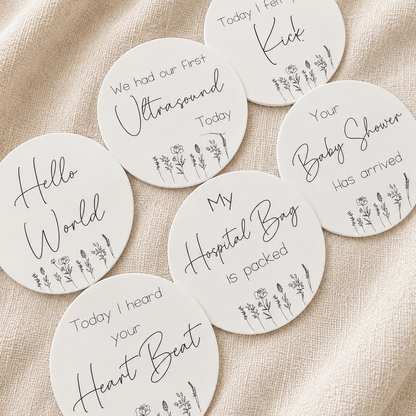 Today I felt
Kick
We had our First
Ultrasound
Today
Your
Baby Shower
Has arrived
Hello
World
My
Hospital Bag
is packed
Today I heard
your
Heart Beat